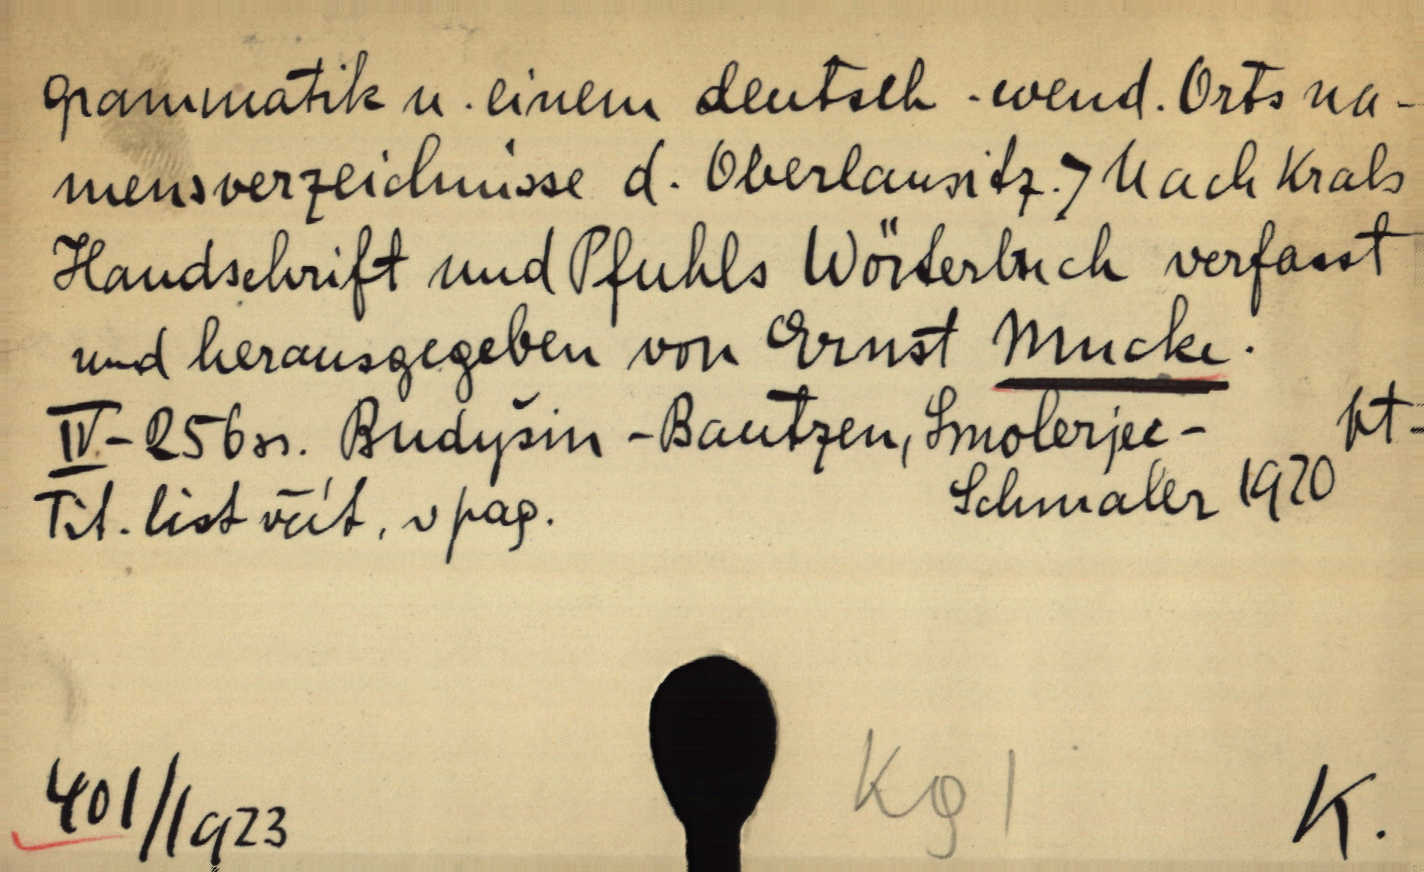 grammatik u. einem deutsch-wend. Ortsna-
mensverzeichnisse d. Oberlausitz.) Nach Krals
Handschrift und Pfuhls Wörterbuch verfasst
und herausgegeben von Ernst Mucke.
IV-256 ss. Budyšin-Bautzen, Smolerjec-
Schmaler 1920
Tit. list včít. v pag.
401/1923
Kg 1
K.